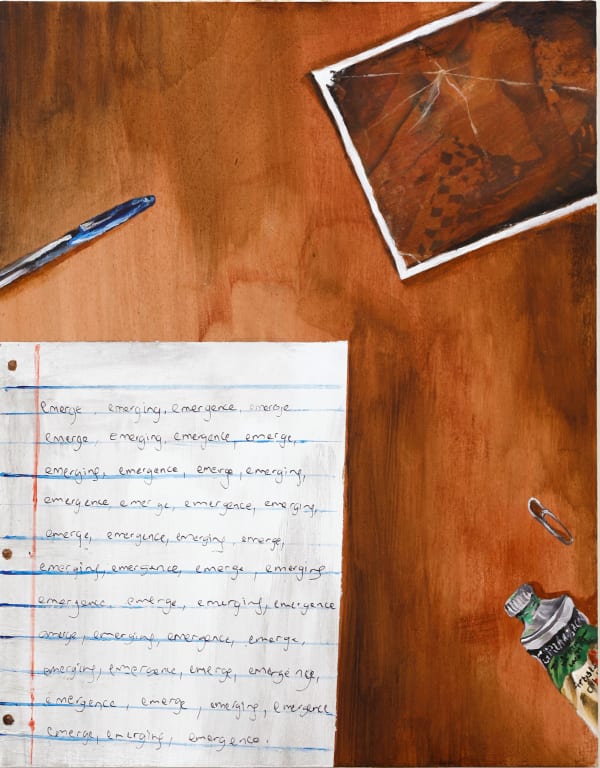 emerge, emerging, emergence, emerge
emerge, Emerging, emergence, emerge,
emerging, emergence, emerge, emerging,
emergence emerge, emergence, emerging,
emerge, emergence, emerging, emerge,
emerging, emergence, emerge, emerging
emergence, emerge, emerging, emergence
emerge, emerging, emergence, emerge,
emerging, emergence, emerge, emergence,
emergence, emerge, emerging, emergence
emerge, emerging, emergence.